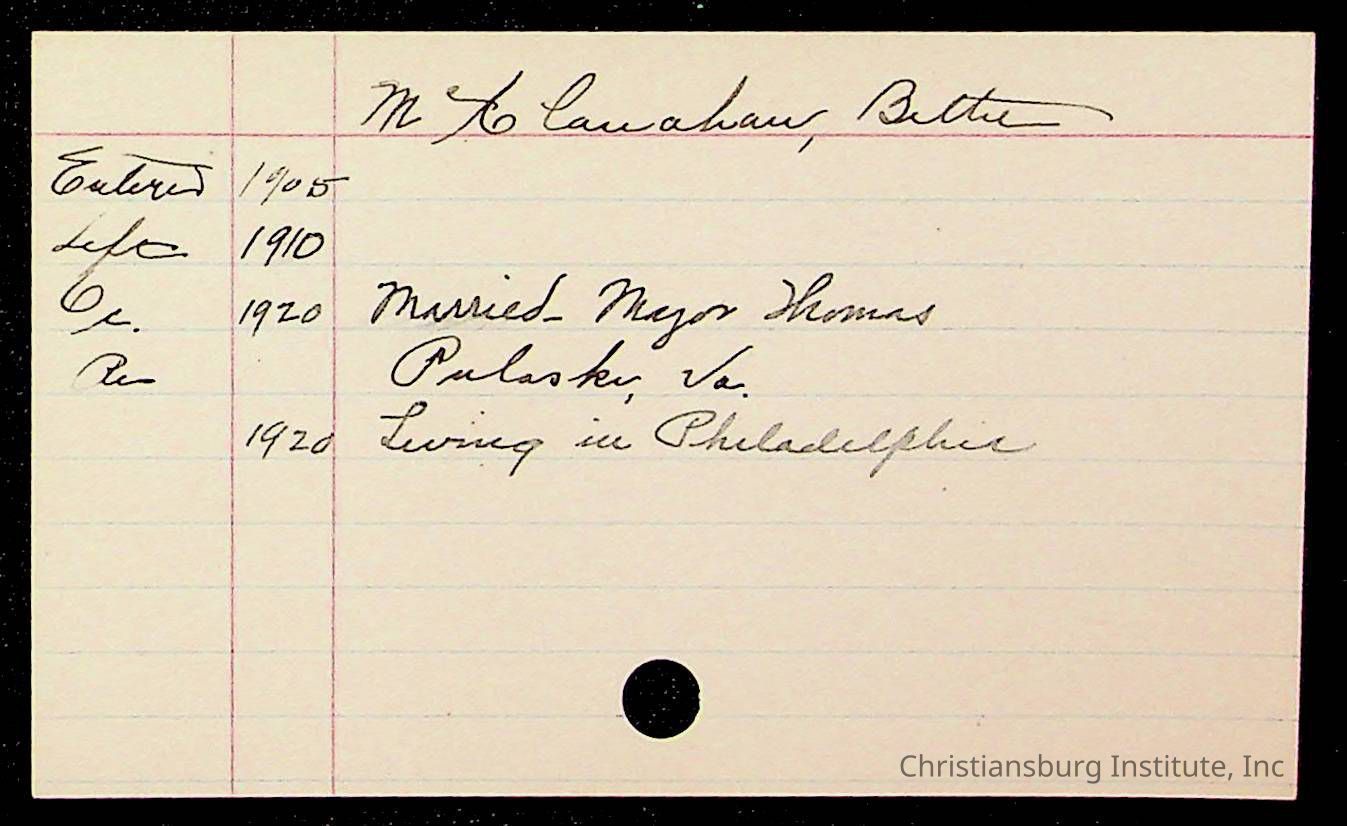 McClanahan, Bettie
Entered 1905
Left 1910
Oc. 1920 Married - Major Thomas
Res Pulaski, Va.
1920 Living in Philadelphia
Christiansburg Institute, Inc